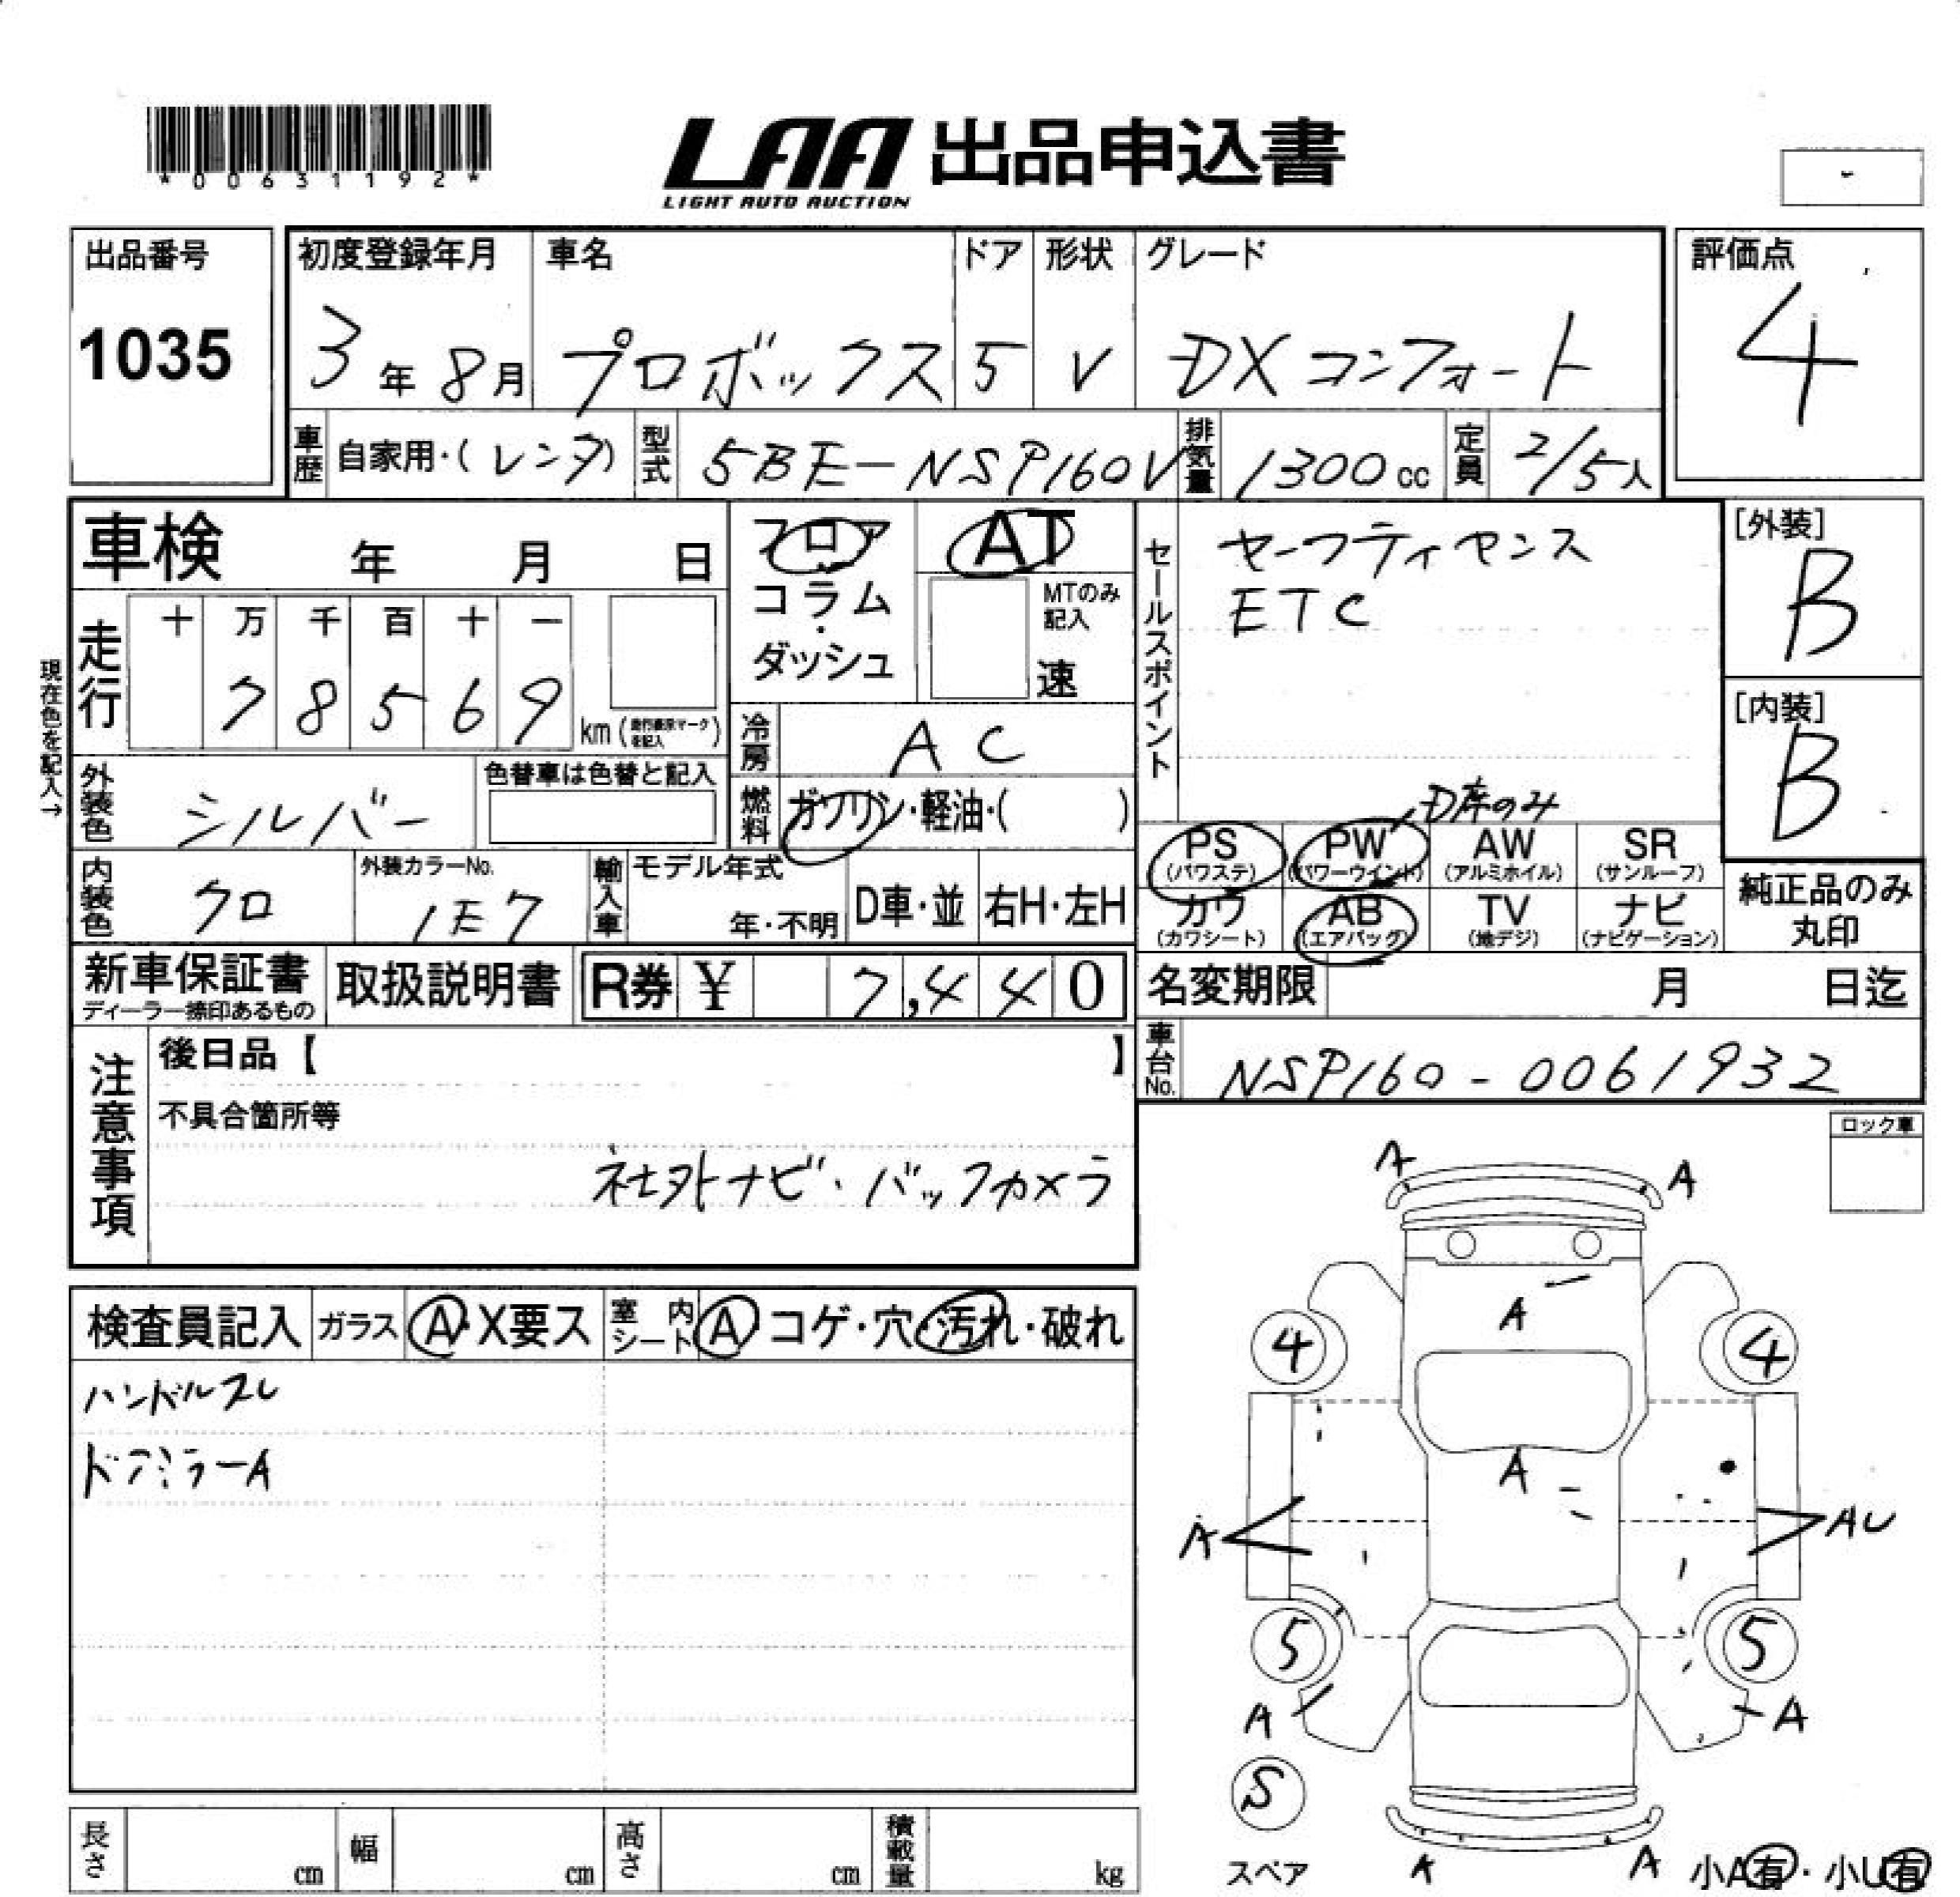 *00631192*
LAA 出品申込書
LIGHT AUTO AUCTION
-
出品番号
1035
初度登録年月
3年8月
車名
プロボックス
ドア
5
形状
V
グレード
DXコンフォート
評価点
4
車歴
自家用・(レンタ)
型式
5BE-NSP160V
排気量
1300cc
定員
2/5人
車検 年 月 日
走行
十 万 千 百 十 一
7 8 5 6 9
km(走行表示マークを記入)
現在色を記入→
外装色
シルバー
色替車は色替と記入
内装色
クロ
外装カラーNo.
1E7
輸入車
モデル年式
年・不明
D車・並
右H・左H
フロア
コラム・
ダッシュ
AT
MTのみ記入
速
冷房
AC
燃料
ガソリン・軽油・( )
セールスポイント
セーフティセンス
ETC
D席のみ
PS
(パワステ)
PW
(パワーウインド)
AW
(アルミホイル)
SR
(サンルーフ)
カワ
(カワシート)
AB
(エアバッグ)
TV
(地デジ)
ナビ
(ナビゲーション)
[外装]
B
[内装]
B
純正品のみ
丸印
新車保証書
ディーラー捺印あるもの
取扱説明書
R券 ¥ 7,440
名変期限 月 日迄
車台No.
NSP160-0061932
注意事項
後日品【 】
不具合箇所等
社外ナビ・バックカメラ
ロック車
検査員記入
ガラス A・X要ス
室内シート A コゲ・穴・汚れ・破れ
ハンドルスレ
ドアミラーA
A A
A
4 4
A
A AU
5 5
A A
S
スペア
A A
小A有・小U有
長さ cm
幅 cm
高さ cm
積載量 kg